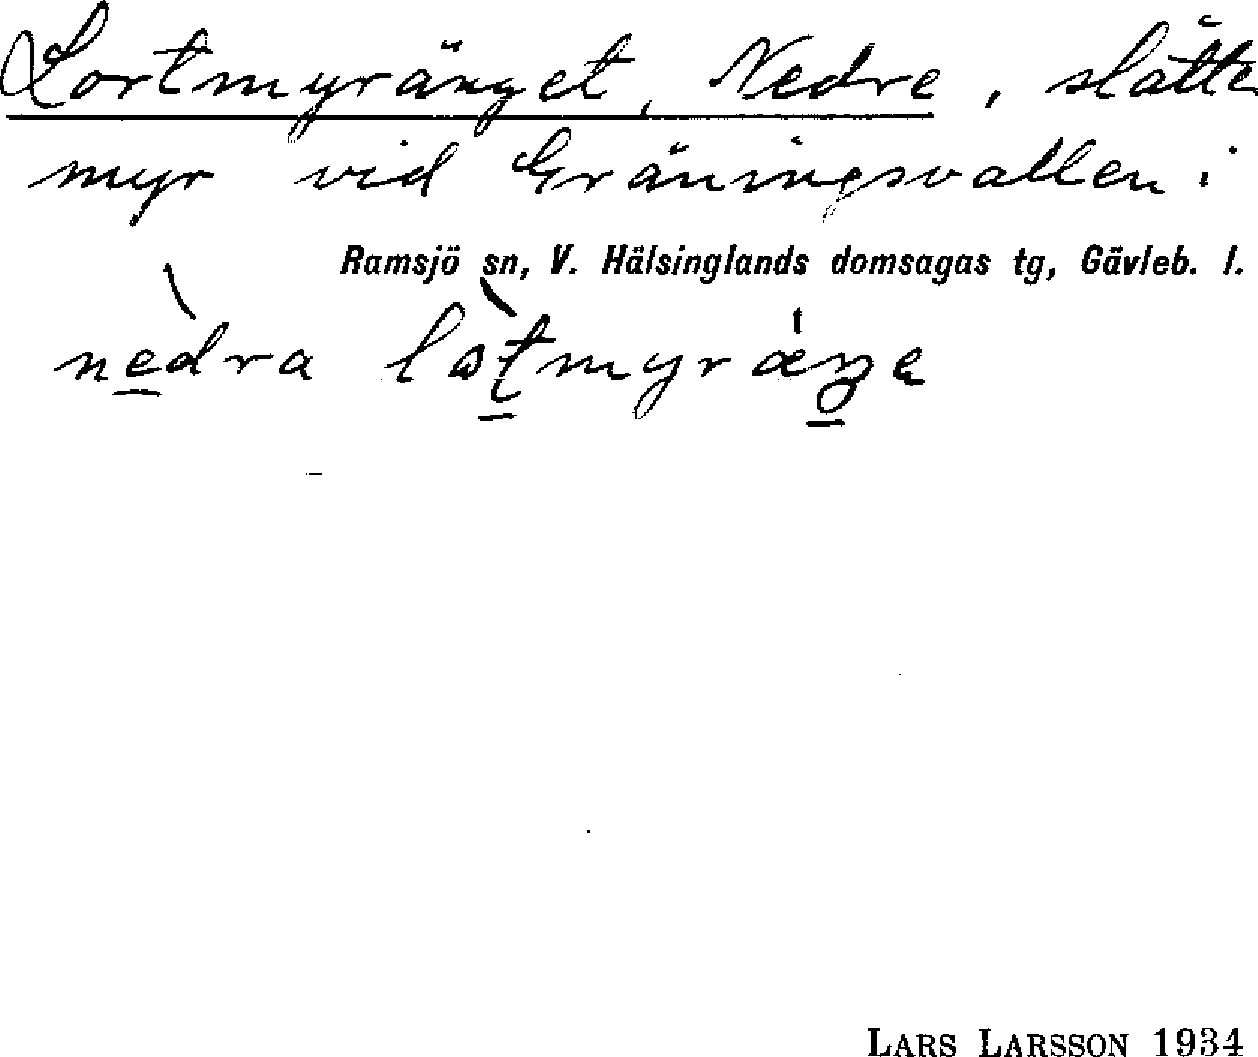 Lortmyränget, Nedre, slåtte
myr vid Gräningsvallen i
Ramsjö sn, V. Hälsinglands domsagas tg, Gävleb. l.
nedra
LARS LARSSON 1934